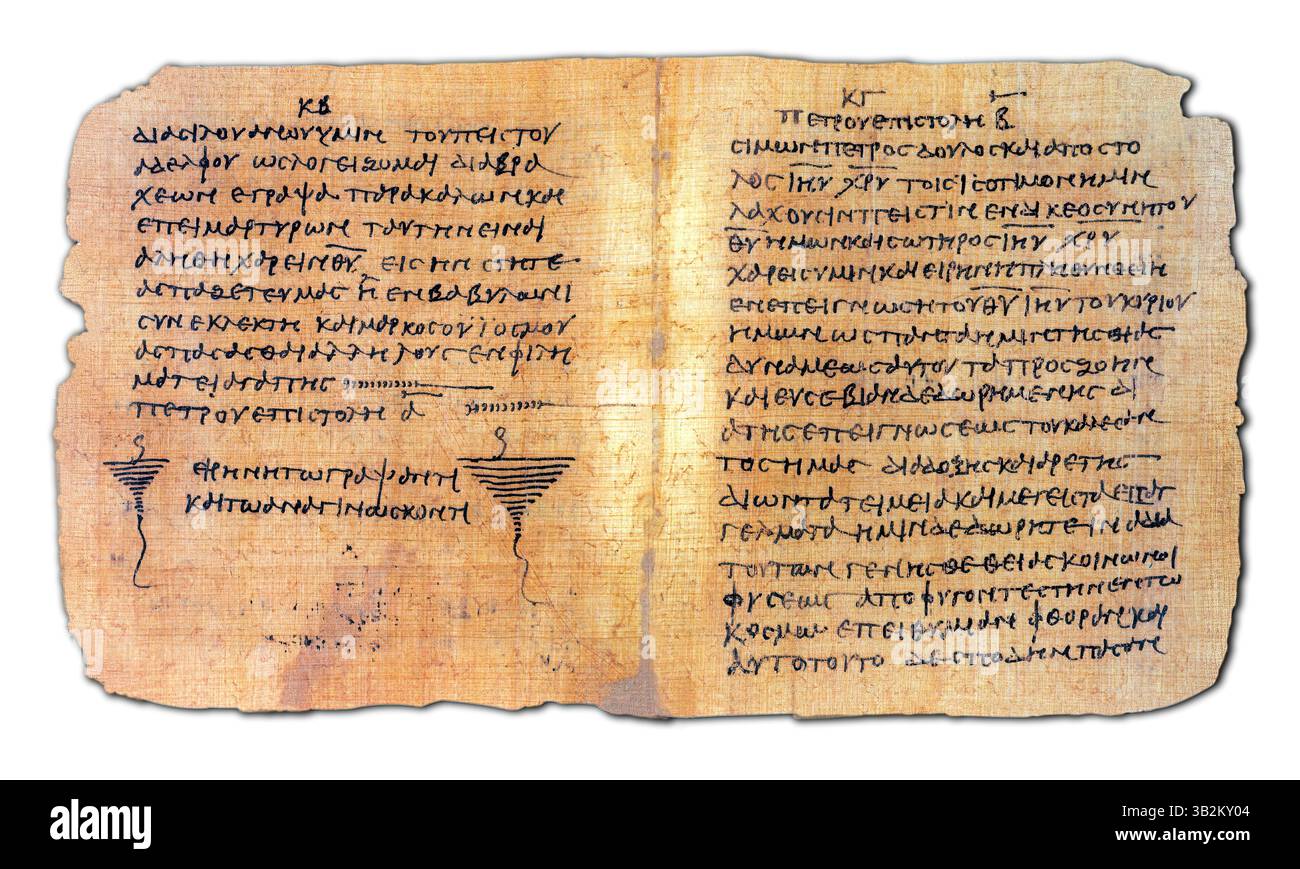 ΚΒ
ΔΙΑ ΣΙΛΟΥΑΝΟΥ ΥΜΙΝ ΤΟΥ ΠΕΙΣΤΟΥ
ΑΔΕΛΦΟΥ ΩΣ ΛΟΓΕΙΖΟΜΑΙ ΔΙΑ ΒΡΑ
ΧΕΩΝ ΕΓΡΑΨΑ ΠΑΡΑΚΑΛΩΝ ΚΑΙ
ΕΠΕΙΜΑΡΤΥΡΩΝ ΤΑΥΤΗΝ ΕΙΝΑΙ
ΑΛΗΘΗ ΧΑΡΕΙΝ ΘΥ ΕΙΣ ΗΝ ΣΤΗΤΕ
ΑΣΠΑΖΕΤΕ ΥΜΑΣ Η ΕΝ ΒΑΒΥΛΩΝΙ
ΣΥΝΕΚΛΕΚΤΗ ΚΑΙ ΜΑΡΚΟΣ Ο ΥΙΟΣ ΜΟΥ
ΑΣΠΑΣΑΣΘΑΙ ΑΛΛΗΛΟΥΣ ΕΝ ΦΙΛΗ
ΜΑΤΕΙ ΑΓΑΠΗΣ
ΠΕΤΡΟΥ ΕΠΙΣΤΟΛΗ Α
ΕΙΡΗΝΗ ΤΩ ΓΡΑΨΑΝΤΙ
ΚΑΙ ΤΩ ΑΝΑΓΙΝΩΣΚΟΝΤΙ
ΚΓ
ΠΕΤΡΟΥ ΕΠΙΣΤΟΛΗ Β
ΣΙΜΩΝ ΠΕΤΡΟΣ ΔΟΥΛΟΣ ΚΑΙ ΑΠΟΣΤΟ
ΛΟΣ ΙΗΥ ΧΡΥ ΤΟΙΣ ΙΣΟΤΙΜΟΝ ΗΜΙΝ
ΛΑΧΟΥΣΙΝ ΠΕΙΣΤΙΝ ΕΝ ΔΙΚΕΟΣΥΝΗ ΤΟΥ
ΘΥ ΗΜΩΝ ΚΑΙ ΣΩΤΗΡΟΣ ΙΗΥ ΧΡΥ
ΧΑΡΕΙΣ ΥΜΙΝ ΚΑΙ ΕΙΡΗΝΗ ΠΛΗΘΥΝΘΕΙΗ
ΕΝ ΕΠΕΙΓΝΩΣΗ ΤΟΥ ΘΥ ΙΗΥ ΤΟΥ ΚΥΡΙΟΥ
ΗΜΩΝ ΩΣ ΠΑΝΤΑ ΗΜΙΝ ΤΗΣ ΘΙΑΣ
ΔΥΝΑΜΕΩΣ ΑΥΤΟΥ ΤΑ ΠΡΟΣ ΖΩΗΝ
ΚΑΙ ΕΥΣΕΒΙΑΝ ΔΕΔΩΡΗΜΕΝΗΣ ΔΙ
Α ΤΗΣ ΕΠΕΙΓΝΩΣΕΩΣ ΤΟΥ ΚΑΛΕΣΑΝ
ΤΟΣ ΗΜΑΣ ΔΙΑ ΔΟΞΗΣ ΚΑΙ ΑΡΕΤΗΣ
ΔΙ ΩΝ ΤΑ ΤΕΙΜΕΙΑ ΚΑΙ ΜΕΓΕΙΣΤΑ ΕΠΑΓ
ΓΕΛΜΑΤΑ ΗΜΙΝ ΔΕΔΩΡΗΤΕ ΙΝΑ ΔΙΑ
ΤΟΥΤΩΝ ΓΕΝΗΣΘΕ ΘΕΙΑΣ ΚΟΙΝΩΝΟΙ
ΦΥΣΕΩΣ ΑΠΟΦΥΓΟΝΤΕΣ ΤΗΝ ΕΝ ΤΩ
ΚΟΣΜΩ ΕΠΕΙΘΥΜΙΑΝ ΦΘΟΡΑΝ ΚΑΙ
ΑΥΤΟ ΤΟΥΤΟ ΔΕ ΣΠΟΥΔΗΝ ΠΑΣΑΝ
alamy
Image ID: 3B2KY04
www.alamy.com